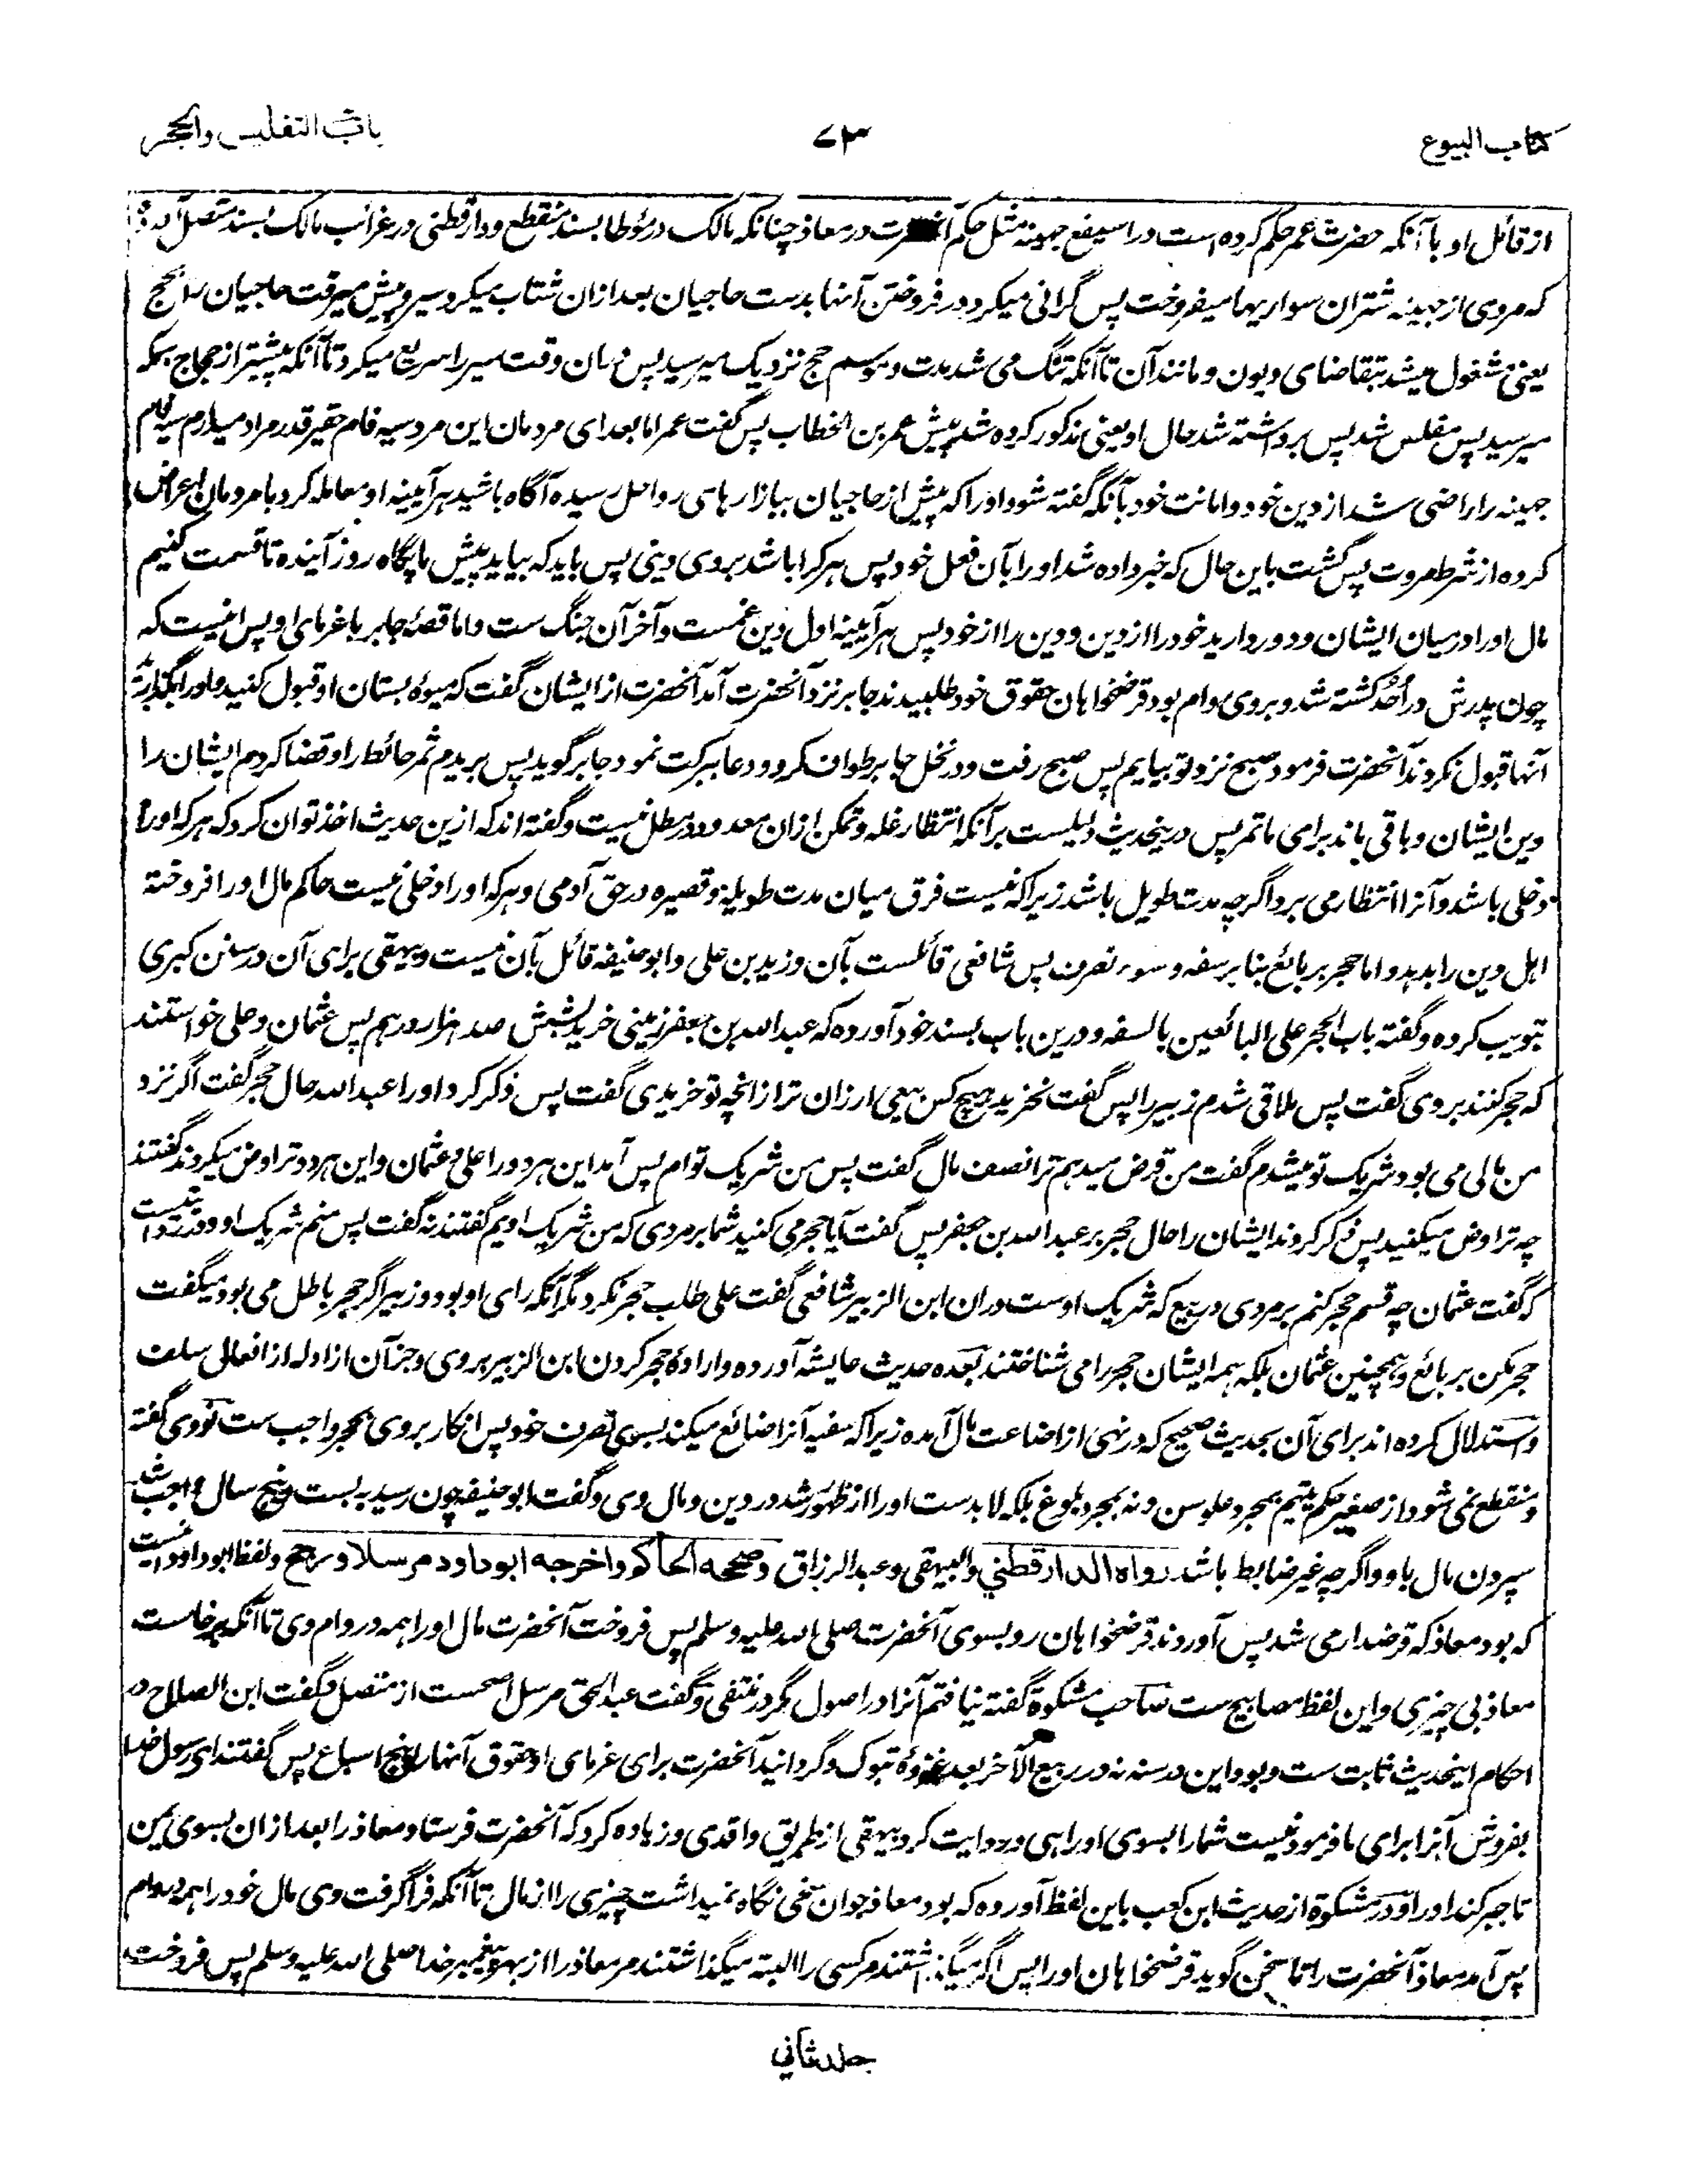 کتاب البیوع
۷۳
باب التفلیس والحجر
از قائل او با آنکه حضرت عمر حکم کرده است در اسیفع جهینه مثل حکم آنحضرت در معاذ چنانکه مالک در مؤطا بسند منقطع و دارقطنی در غرائب مالک بسند متصل آورده
که مردی از جهینه شتران سواریها میفروخت پس گرانی میکرد در فروختن آنها بدست حاجیان بعد ازان شتاب میکرد سیر و پیش میرفت حاجیان را بحج
یعنی مشغول میشد بتقاضای دیون و مانند آن تا آنکه تنگ می شد مدت و موسم حج نزدیک میرسید پس درمان وقت سیر را سریع میکرد تا آنکه پیشتر از حجاج بمکه
میرسید پس مفلس شد پس برداشته شد حال او یعنی مذکور کرده شد پیش عمر بن الخطاب پس گفت عمر اما بعد ای مردمان این مرد سیه فام حقیر قدر مراد میدارم سیه فام
جهینه را راضی شد از دین خود و امانت خود بآنکه گفته شود او را که پیش از حاجیان ببازارهای رواحل رسیده آگاه باشید هر آیینه او معامله کرد با مردمان اعراض
کرده از شرط مروت پس گشت باین حال که خبر داده شد او را بآن فعل خود پس هر کرا باشد بروی دینی پس باید که بیاید پیش ما پگاه روز آینده تا قسمت کنیم
مال او را درمیان ایشان و دور دارید خود را از دین و دین را از خود پس هر آیینه اول دین غمست و آخر آن جنگ ست و اما قصۀ جابر با غرمای او پس اینست که
چون پدرش در اُحُد کشته شد و بروی وام بود قرضخواهان حقوق خود طلبیدند جابر نزد آنحضرت آمد آنحضرت از ایشان گفت که میوۀ بستان او قبول کنید و او را بگذارید
آنها قبول نکردند آنحضرت فرمود صبح نزد تو بیایم پس صبح رفت و در نخل جابر طواف کرد و دعا ببرکت نمود جابر گوید پس بریدم ثمر حائط را و قضا کردم ایشان را
دین ایشان و باقی ماند برای ما تمر پس درینحدیث دلیلست بر آنکه انتظار غله و تمکن ازان معدود در مطل نیست و گفته اند که ازین حدیث اخذ توان کرد که هر که او را
دخلی باشد و آنرا انتظار می برد اگرچه مدت طویل باشد زیرا که نیست فرق میان مدت طویله و قصیره در حق آدمی و هر که او را دخلی نیست حاکم مال او را فروخته
اهل دین را بدهد و اما حجر بر بائع بنا بر سفه و سوء تصرف پس شافعی قائلست بآن و زید بن علی و ابو حنیفه قائل بآن نیست و بیهقی برای آن در سنن کبری
تبویب کرده و گفته باب الحجر علی البائعین بالسفه و درین باب بسند خود آورده که عبد الله بن جعفر زمینی خرید بشش صد هزار درهم پس عثمان و علی خواستند
که حجر کنند بروی گفت پس ملاقی شدم زبیر را پس گفت نخرید هیچ کس بیعی ارزان تر از انچه تو خریدی گفت پس ذکر کرد او را عبد الله حال حجر گفت اگر نزد
من مالی می بود شریک تو میشدم گفت من قرض میدهم ترا نصف مال گفت پس من شریک توام پس آمد این هر دو را علی و عثمان و این هر دو تراوض میکردند گفتند
چه تراوض میکنید پس ذکر کردند ایشان را حال حجر بر عبد الله بن جعفر پس گفت آیا حجر می کنید شما بر مردی که من شریک اویم گفتند نه گفت پس منم شریک او
که گفت عثمان چه قسم حجر کنم بر مردی در بیع که شریک اوست دران ابن الزبیر شافعی گفت علی طلب حجر نکرد مگر آنکه رای او بود و زبیر اگر حجر باطل می بود میگفت
حجر مکن بر بائع و همچنین عثمان بلکه همه ایشان حجر را می شناختند بعده حدیث عایشه آورده و ارادۀ حجر کردن ابن الزبیر بروی و جز آن از ادله از افعال سلف
و استدلال کرده اند برای آن بحدیث صحیح که در نهی از اضاعت مال آمده زیرا که سفیه آنرا ضائع میکند بسوی تصرف خود پس انکار بروی بحجر واجب ست نووی گفته
و منقطع نمی شود از صغیر حکم یتیم بمجرد علو سن و نه بمجرد بلوغ بلکه لابدست او را از ظهور رشد در دین و مال وی و گفت ابو حنیفه چون رسید به بست و پنج سال واجب شد
سپردن مال باو و اگرچه غیر ضابط باشد رواه الدارقطني والبیهقی وعبد الرزاق وصححه الحاکم واخرجه ابوداود مرسلا ورجح و لفظ ابوداود اینست
که بود معاذ که قرضدار می شد پس آوردند قرضخواهان رو بسوی آنحضرت صلی الله علیه وسلم پس فروخت آنحضرت مال او را همه در وام وی تا آنکه برخاست
معاذ بی چیزی و این لفظ مصابیح ست صاحب مشکوة گفته نیافتم آنرا در اصول مگر در منتقی و گفت عبد الحق مرسل اصحست از متصل و گفت ابن الصلاح در
احکام اینحدیث ثابت ست و بود این در سنه نه در ربیع الآخر بعد غزوۀ تبوک و گردانید آنحضرت برای غرمای او حقوق آنها را پنج اسباع پس گفتند ای رسول خدا
بفروش آنرا برای ما فرمود نیست شما را بسوی او راهی و روایت کرد بیهقی از طریق واقدی و زیاده کرد که آنحضرت فرستاد معاذ را بعد ازان بسوی یمن
تا جبر کند او را و در مشکوة از حدیث ابن کعب باین لفظ آورده که بود معاذ جوان سخی نگاه نمیداشت چیزی را از مال تا آنکه فرا گرفت وی مال خود را همه در وام
پس آمد معاذ آنحضرت را تا سخن گوید قرضخواهان او را پس اگر میگذاشتند مر کسی را البته میگذاشتند مر معاذ را از بهر پیغمبر خدا صلی الله علیه وسلم پس فروخت
جلد ثانی